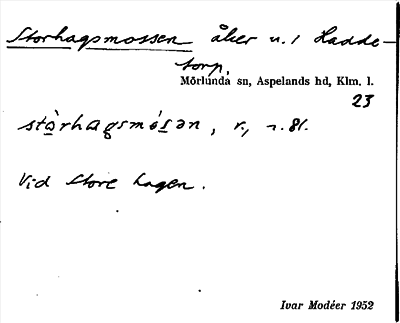 Storhagsmossen åker n. 1 Hadde-
torp,
Mörlunda sn, Aspelands hd, Klm. l.
23
stò̱rhagsmós̱ən, r., n. 81.
Vid Store hagen.
Ivar Modéer 1952